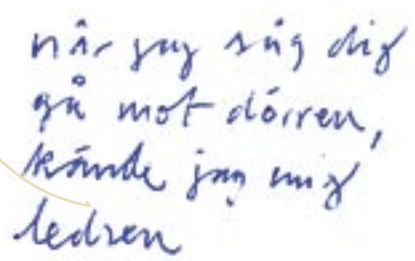 när jag såg dig
gå mot dörren,
kände jag mig
ledsen